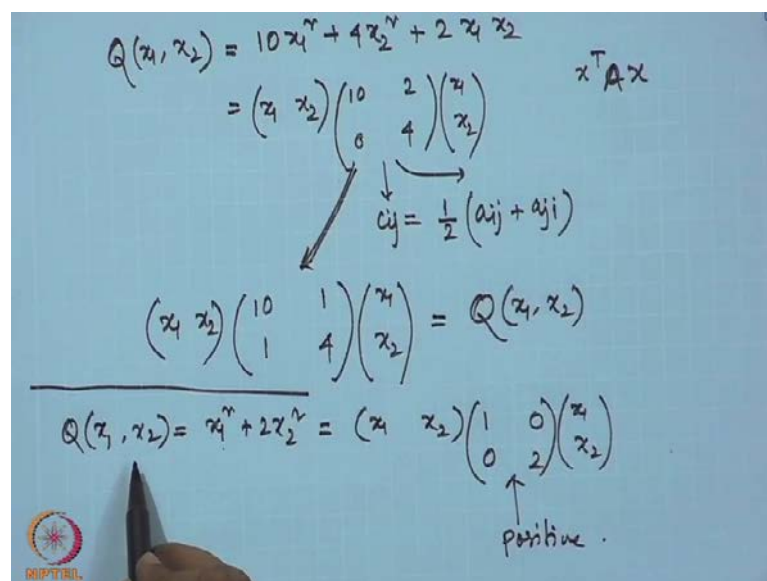 Q(x₁, x₂) = 10x₁² + 4x₂² + 2 x₁ x₂
= (x₁ x₂) (10 2
0 4) (x₁
x₂)
xᵀAx
cij = 1/2 (aij + aji)
(x₁ x₂) (10 1
1 4) (x₁
x₂) = Q(x₁, x₂)
Q(x₁, x₂) = x₁² + 2x₂² = (x₁ x₂) (1 0
0 2) (x₁
x₂)
positive.
NPTEL